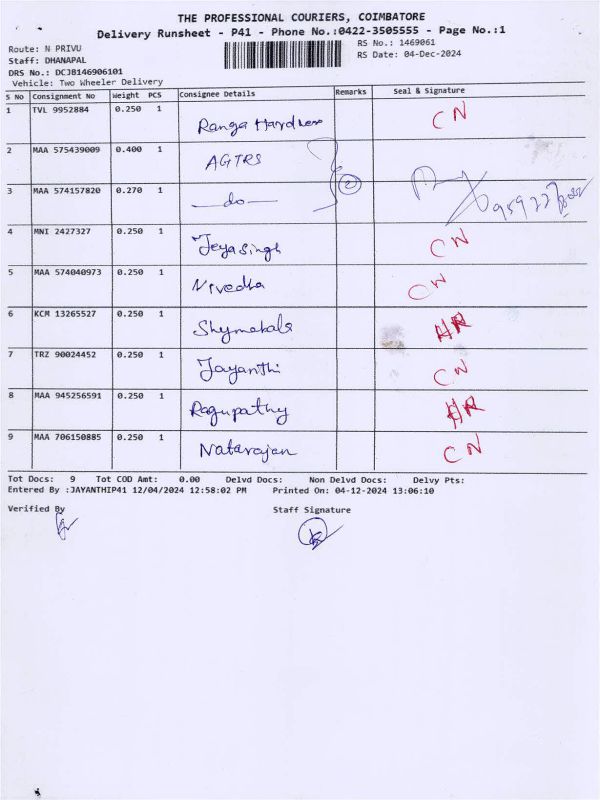 THE PROFESSIONAL COURIERS, COIMBATORE
Delivery Runsheet - P41 - Phone No.:0422-3505555 - Page No.:1
Route: N PRIVU RS No.: 1469061
Staff: DHANAPAL RS Date: 04-Dec-2024
DRS No.: DCJB146906101
Vehicle: Two Wheeler Delivery
S No Consignment No Weight PCS Consignee Details Remarks Seal & Signature
1 TVL 9952884 0.250 1 Ranga Hardware CN
2 MAA 575439009 0.400 1 AGTRS
3 MAA 574157820 0.270 1 —do— 2
4 MNI 2427327 0.250 1 Jeyasingh CN
5 MAA 574040973 0.250 1 Nivedha CN
6 KCM 13265527 0.250 1 Shymakala HR
7 TRZ 90024452 0.250 1 Jayanthi CN
8 MAA 945256591 0.250 1 Ragupathy HR
9 MAA 706150885 0.250 1 Natarajan CN
Tot Docs: 9 Tot COD Amt: 0.00 Delvd Docs: Non Delvd Docs: Delvy Pts:
Entered By :JAYANTHIP41 12/04/2024 12:58:02 PM Printed On: 04-12-2024 13:06:10
Verified By Staff Signature